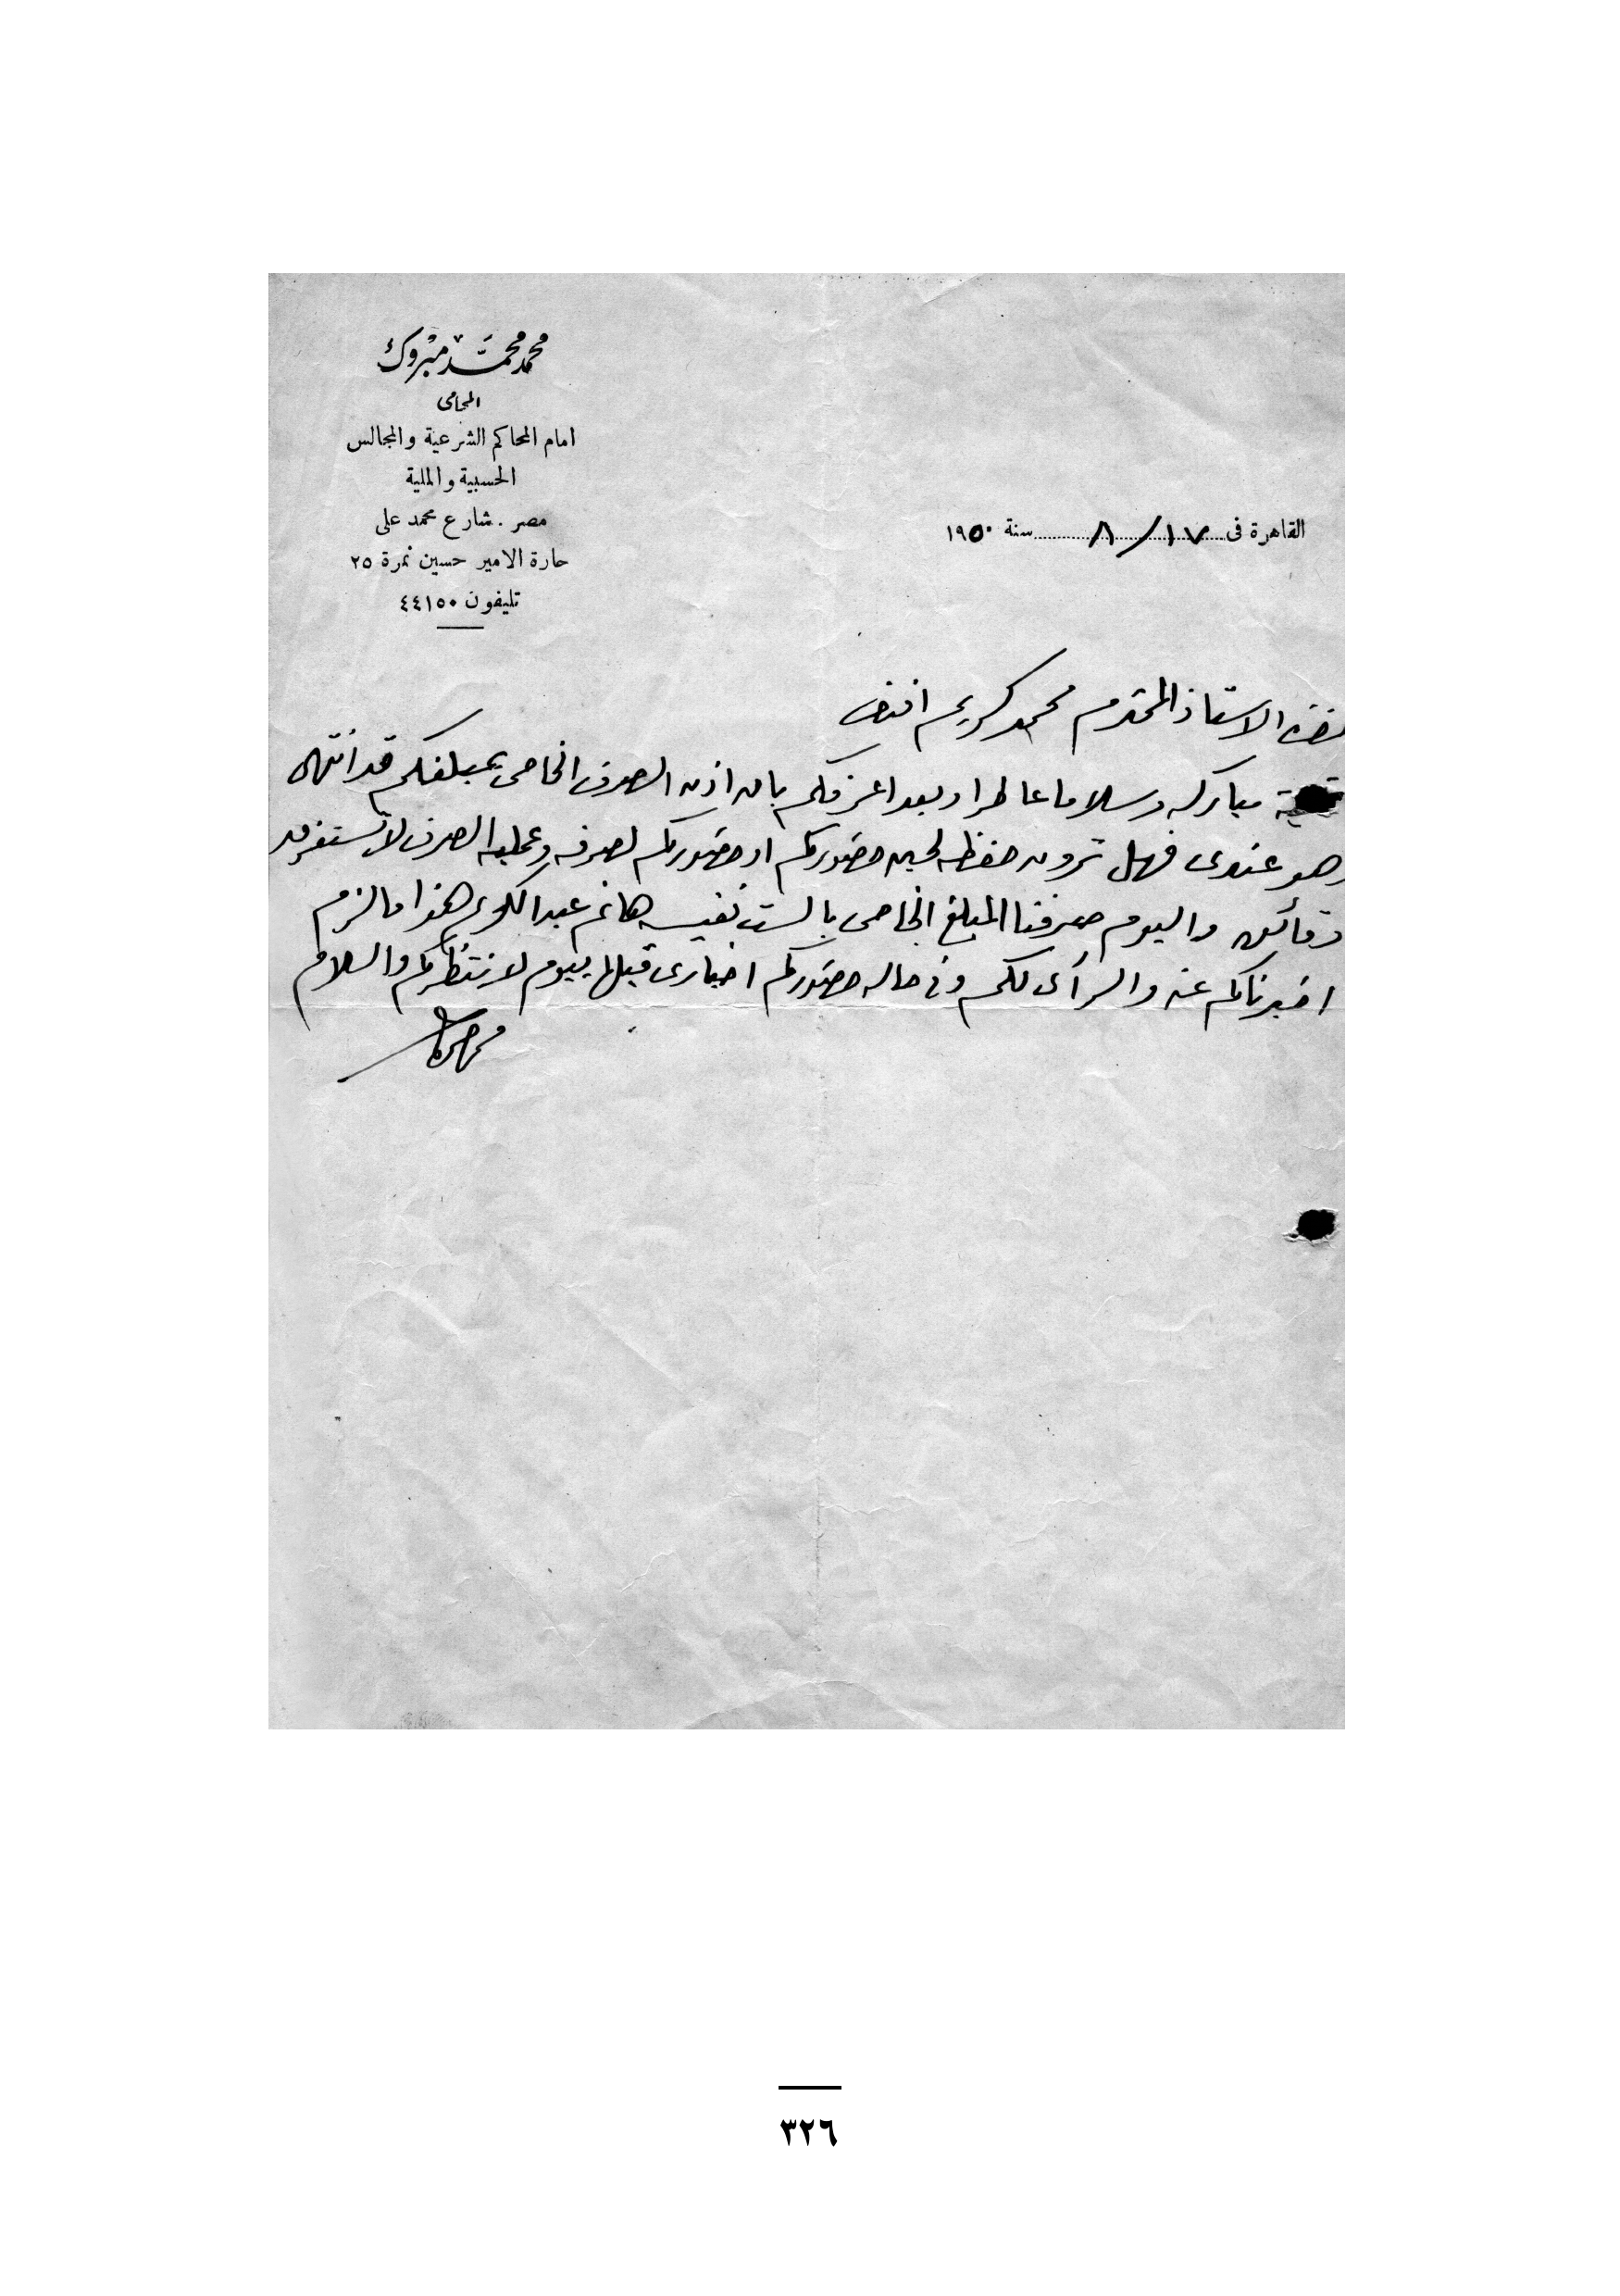 محمد محمد مبروك
المحامى
امام المحاكم الشرعية والمجالس
الحسبية والملية
مصر . شارع محمد على
حارة الامير حسين نمرة ٢٥
تليفون ٤٤١٥٠
القاهرة فى ١٧/٨ سنة ١٩٥٠
حضرة الاستاذ المحترم محمد كريم افندى
تحية مباركه وسلاما عاطرا وبعد اعرفكم بان اذن الصرف الخاص بمبلغكم قد انتهى
وهو عندى فهل ترون حفظه لحين حضوركم او حضوركم لصرفه وعمليه الصرف لا تستغرق
دقائق واليوم صرفنا المبلغ الخاص بالست نفيسه هانم عبد الكريم هذا ما لزم
اخبرناكم عنه والرأى لكم وفى حاله حضوركم اخبارى قبلها بيوم لانتظركم والسلام
٣٢٦